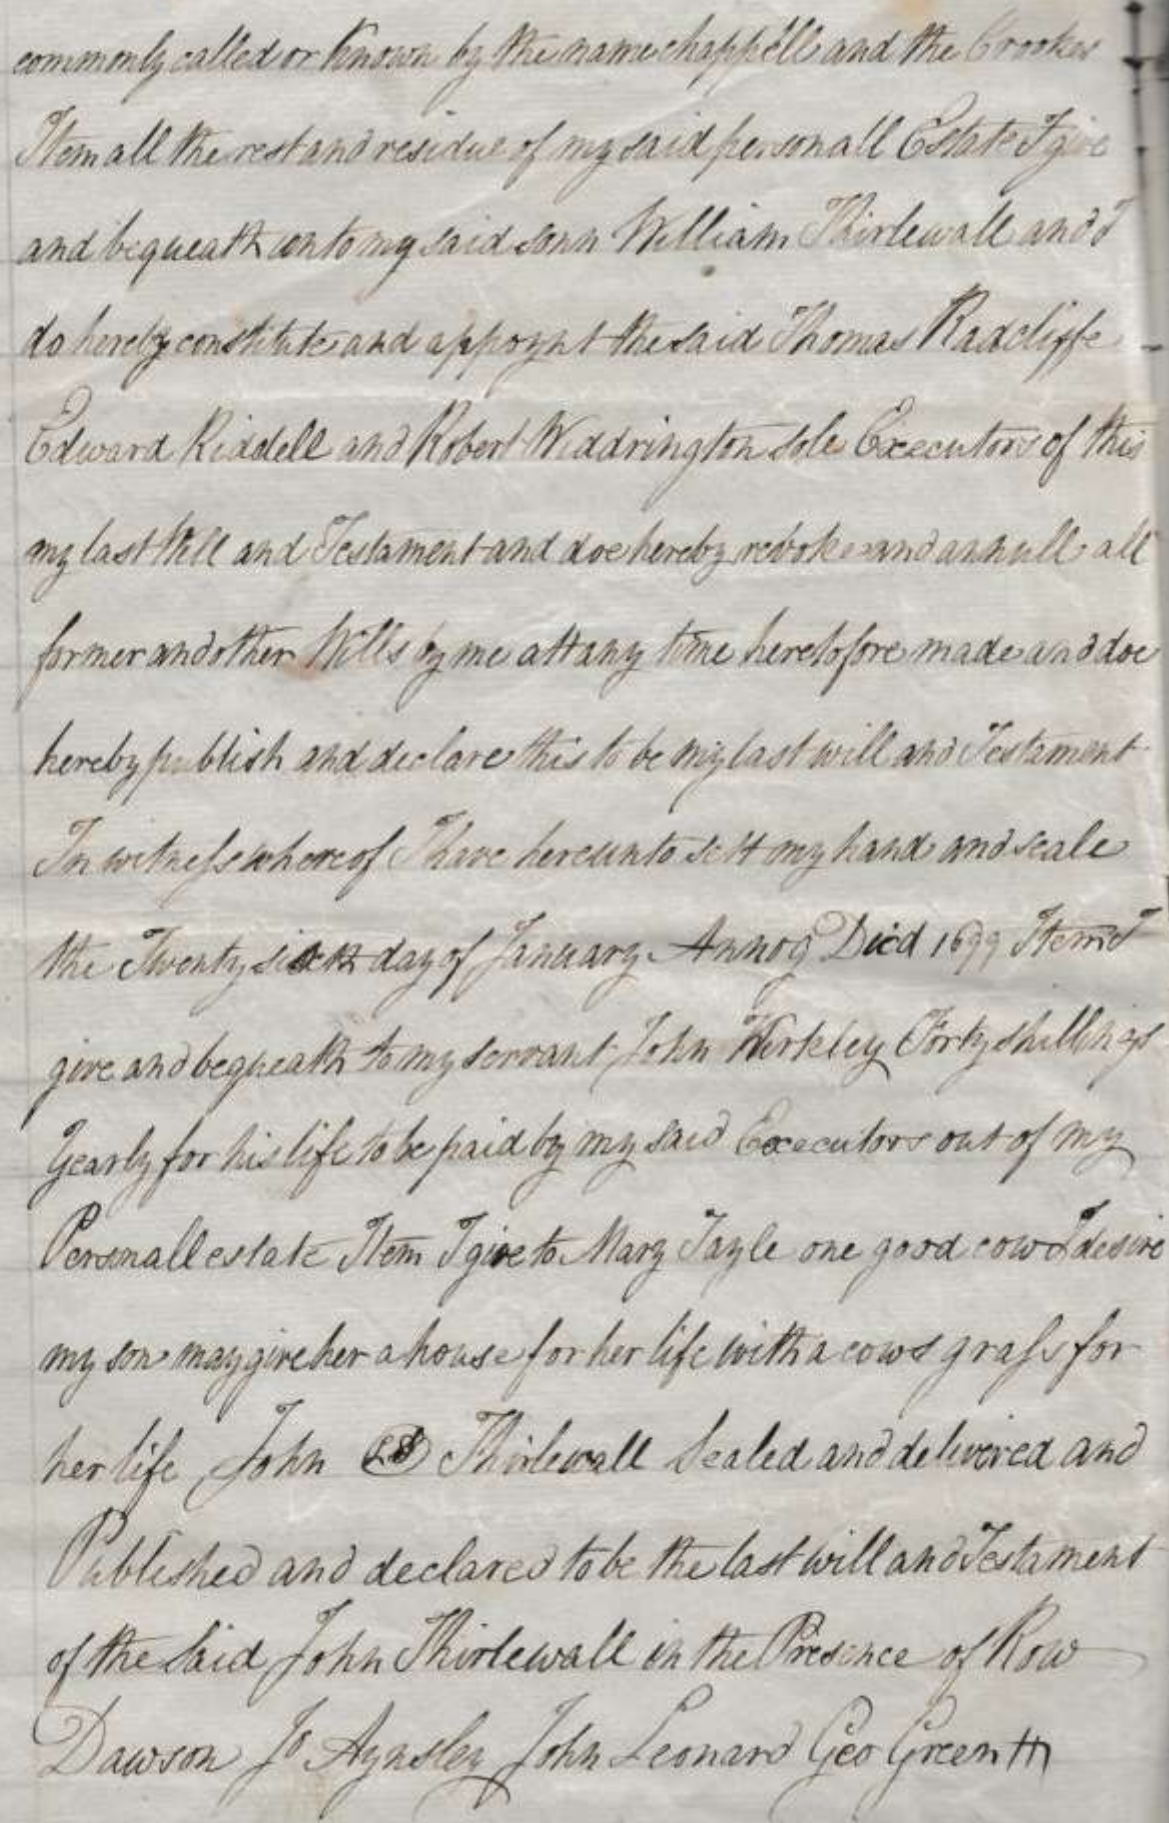 commonly called or known by the name chappell and the Crookes
Item all the rest and residue of my said personall Estate I give
and bequeath unto my said sonn William Thirlewall and I
do hereby constitute and appoynt the said Thomas Radcliffe
Edward Riddell and Robert Widdrington sole Executors of this
my last Will and Testament and doe hereby revoke and annull all
former and other Wills by me att any time heretofore made and doe
hereby publish and declare this to be my last will and Testament
In witness whereof I have hereunto sett my hand and seale
the Twenty sixth day of January Annoq Died 1699 Item I
give and bequeath to my servant John Kirkley Forty shillings
Yearly for his life to be paid by my said Executors out of my
Personall estate Item I give to Mary Tayle one good cow I desire
my son may give her a house for her life with a cows grass for
her life John Thirlewall Sealed and delivered and
Published and declared to be the last will and Testament
of the said John Thirlewall in the Presence of Row
Dawson Jo Aynsley John Leonard Geo Green